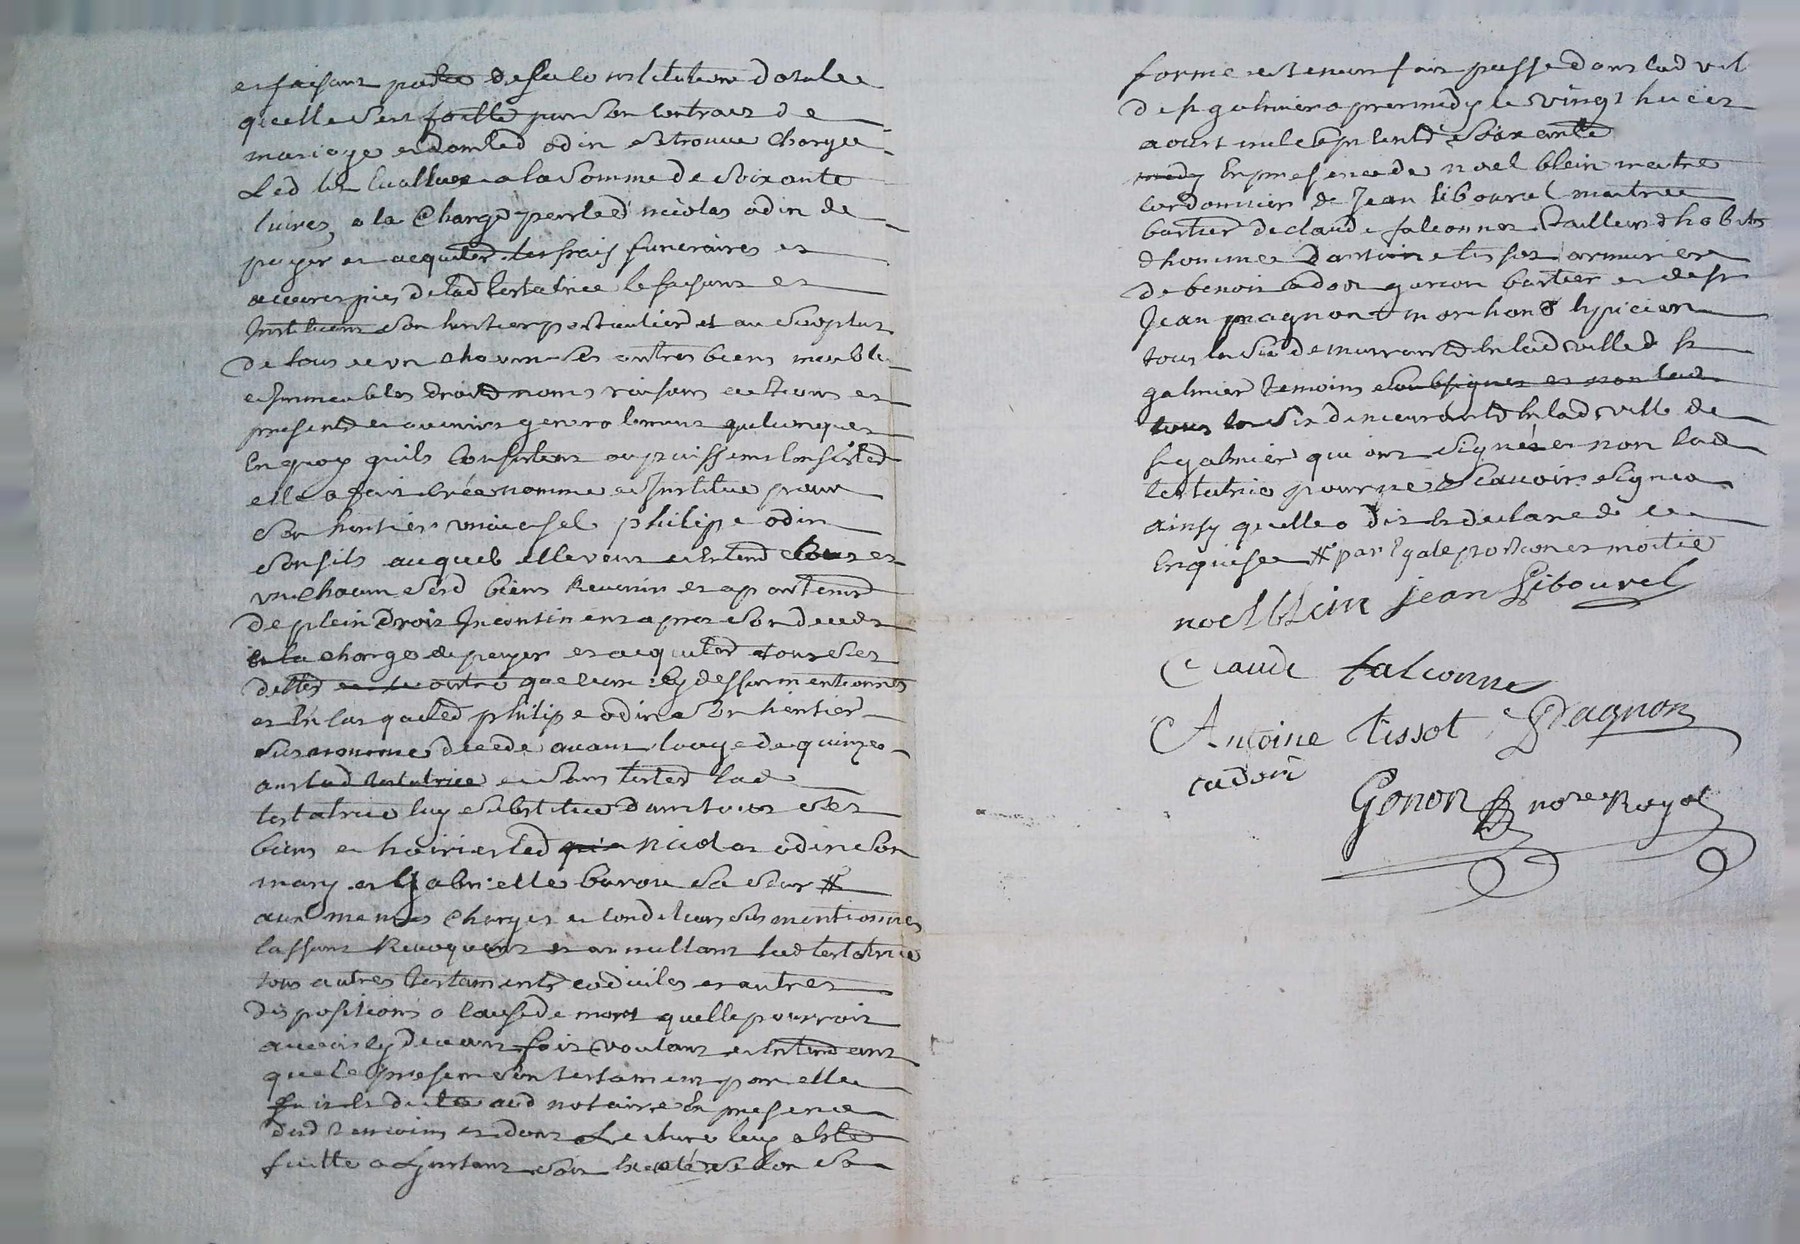 et faisant partie de sa constitution dotale
quelle sest faitte par son contract de
mariage et dont led odin se trouve chargé
led lit evallué a la somme de soixante
livres, a la charge par led nicolas odin de
payer et acquiter les frais funeraires et
œuvres pies de lad testatrice le faisant et
Instituant son heritier particulier et au surplus
de tous et un chacun ses autres biens meubles
et Immeubles droits noms raisons actions et
presents et avenirs generalement quelconques
En quoy quils consistent ou puissent Consister
elle a fait créé nommé et Institué pour
son heritier universel philipe odin
son fils auquel elle veut et Entend tous et
un chacun sesd biens Revenir et apartenir
de plein droit Incontinent apres son deceds
a la charge de payer et acquiter tous ses
dettes autre que ceux cy dessus mentionnés
et En cas que led philipe odin son heritier
susnommé decede avant l'aage de quinze
ans et sans tester lad
testatrice luy substitue dans tous ses
biens et hoiries led nicolas odin son
mary et Gabrielle barou sa seur #
aux memes charges et conditions sus mentionnés
Cassant Revoquant et annullant lad testatrice
tous autres testaments codiciles et autres
dispositions a cause de mort quelle pourroit
avoir cy devant fait voulant et Entendant
que le present son testament par elle
fait et dicté aud notaire En presence
desd temoins et dont Lecture luy a été
faitte a L'instant soit Executé selon sa
forme et teneur fait et passé dans lad ville
de st galmier apres midy le vingt huict
aoust mil sept cents soixante
En presence de noel blein maitre
cordonnier de Jean libourel maitre
bastier de claude falconnet tailleur d'habits
d'homme d'antoine tissot armurier
de benoit cadoz garcon bastier et de sr
Jean pragnon marchand Epicier
tous les six demeurants En lad ville de st
galmier temoins soubsignés et non lad
tous les six demeurants En lad ville de
st galmier qui ont signés et non lad
testatrice pour ne scavoir signer
ainsy quelle a dit et declaré de ce
Enquise # par Egale portion et moitié
noel blein jean Libourel
Claude falconnet
Antoine tissot Pragnon
cadoü
Gonon nore Royal